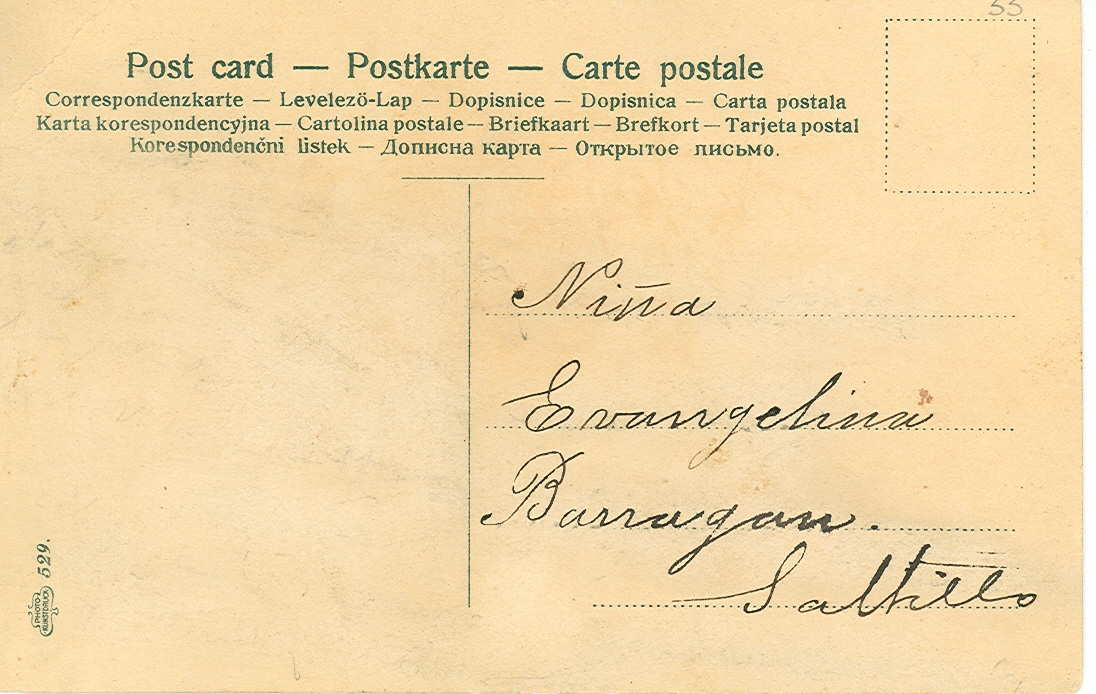 55
Post card — Postkarte — Carte postale
Correspondenzkarte — Levelezö-Lap — Dopisnice — Dopisnica — Carta postala
Karta korespondencyjna — Cartolina postale — Briefkaart — Brefkort — Tarjeta postal
Korespondenčni listek — Дописна карта — Открытое письмо.
Niña
Evangelina
Barragan.
Saltillo
529.
PHOTO
KUNSTDRUCK